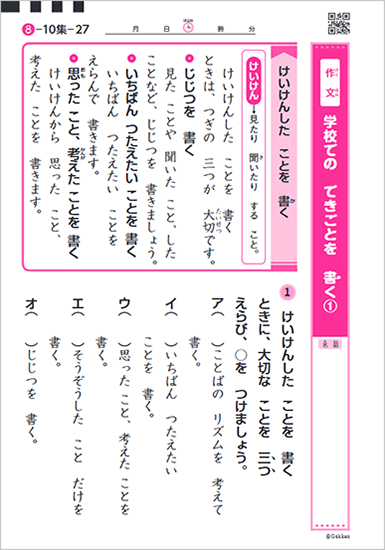 8-10集-27
月 日 時 分
作文
学校での できごとを 書く①
名前
けいけんした ことを 書く
けいけん→見たり 聞いたり する こと。
けいけんした ことを 書く
ときは、つぎの 三つが 大切です。
●じじつを 書く
見た ことや 聞いた こと、した
ことなど、じじつを 書きましょう。
●いちばん つたえたい ことを 書く
いちばん つたえたい ことを
えらんで 書きます。
●思った こと、考えた ことを 書く
けいけんから 思った こと、
考えた ことを 書きます。
1 けいけんした ことを 書く
ときに、大切な ことを 三つ
えらび、○を つけましょう。
ア( )ことばの リズムを 考えて
書く。
イ( )いちばん つたえたい
ことを 書く。
ウ( )思った こと、考えた ことを
書く。
エ( )そうぞうした こと だけを
書く。
オ( )じじつを 書く。
©Gakken